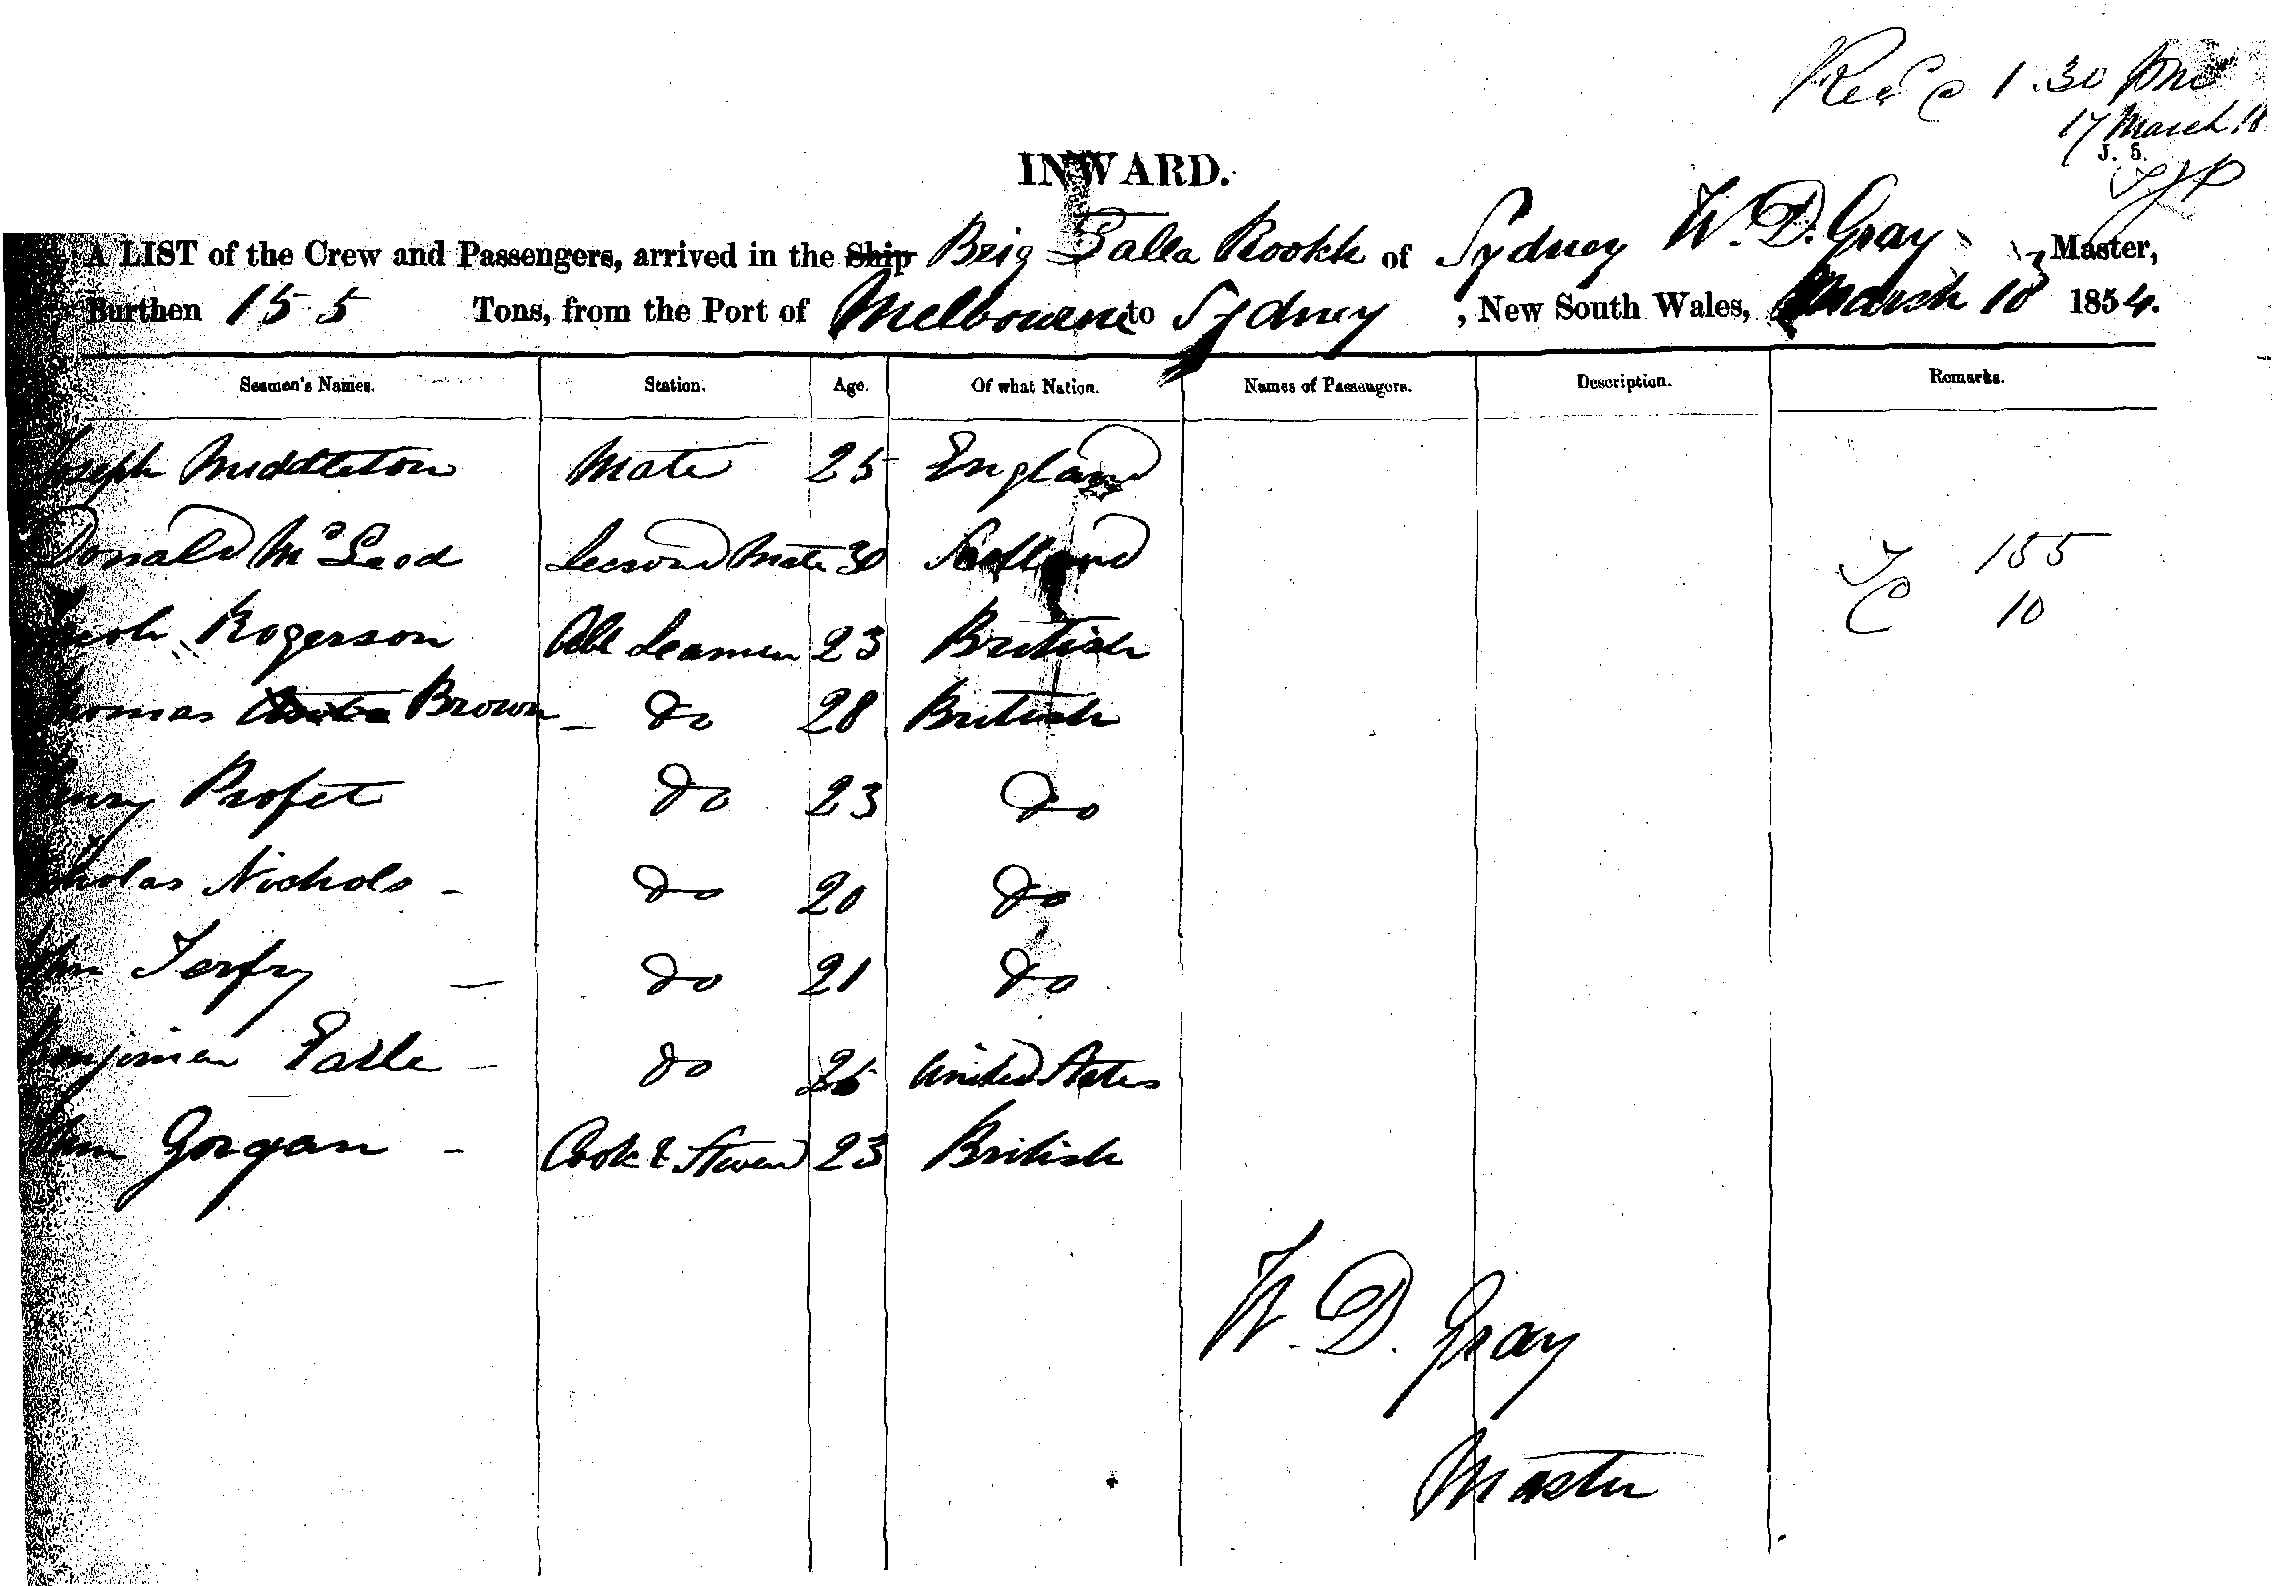 Recd 1.30 pm
17 March 18
J. 5.
INWARD.
A LIST of the Crew and Passengers, arrived in the Ship Brig Lalla Rookh of Sydney W. D. Gray Master,
Burthen 155 Tons, from the Port of Melbourne to Sydney , New South Wales, March 18 1854.
Seamen's Names. Station. Age. Of what Nation. Names of Passengers. Description. Remarks.
Joseph Middleton Mate 25 England
Donald McLeod Second Mate 30 Scotland
T 155
Rogerson Able Seamen 23 British
C 10
Thomas Brown - do 28 British
Henry Profet do 23 do
Nicholas Nichols - do 20 do
John Terfry - do 21 do
Benjimen Earle - do 25 United States
John Gorgan - Cook & Steward 23 British
W. D. Gray
Master